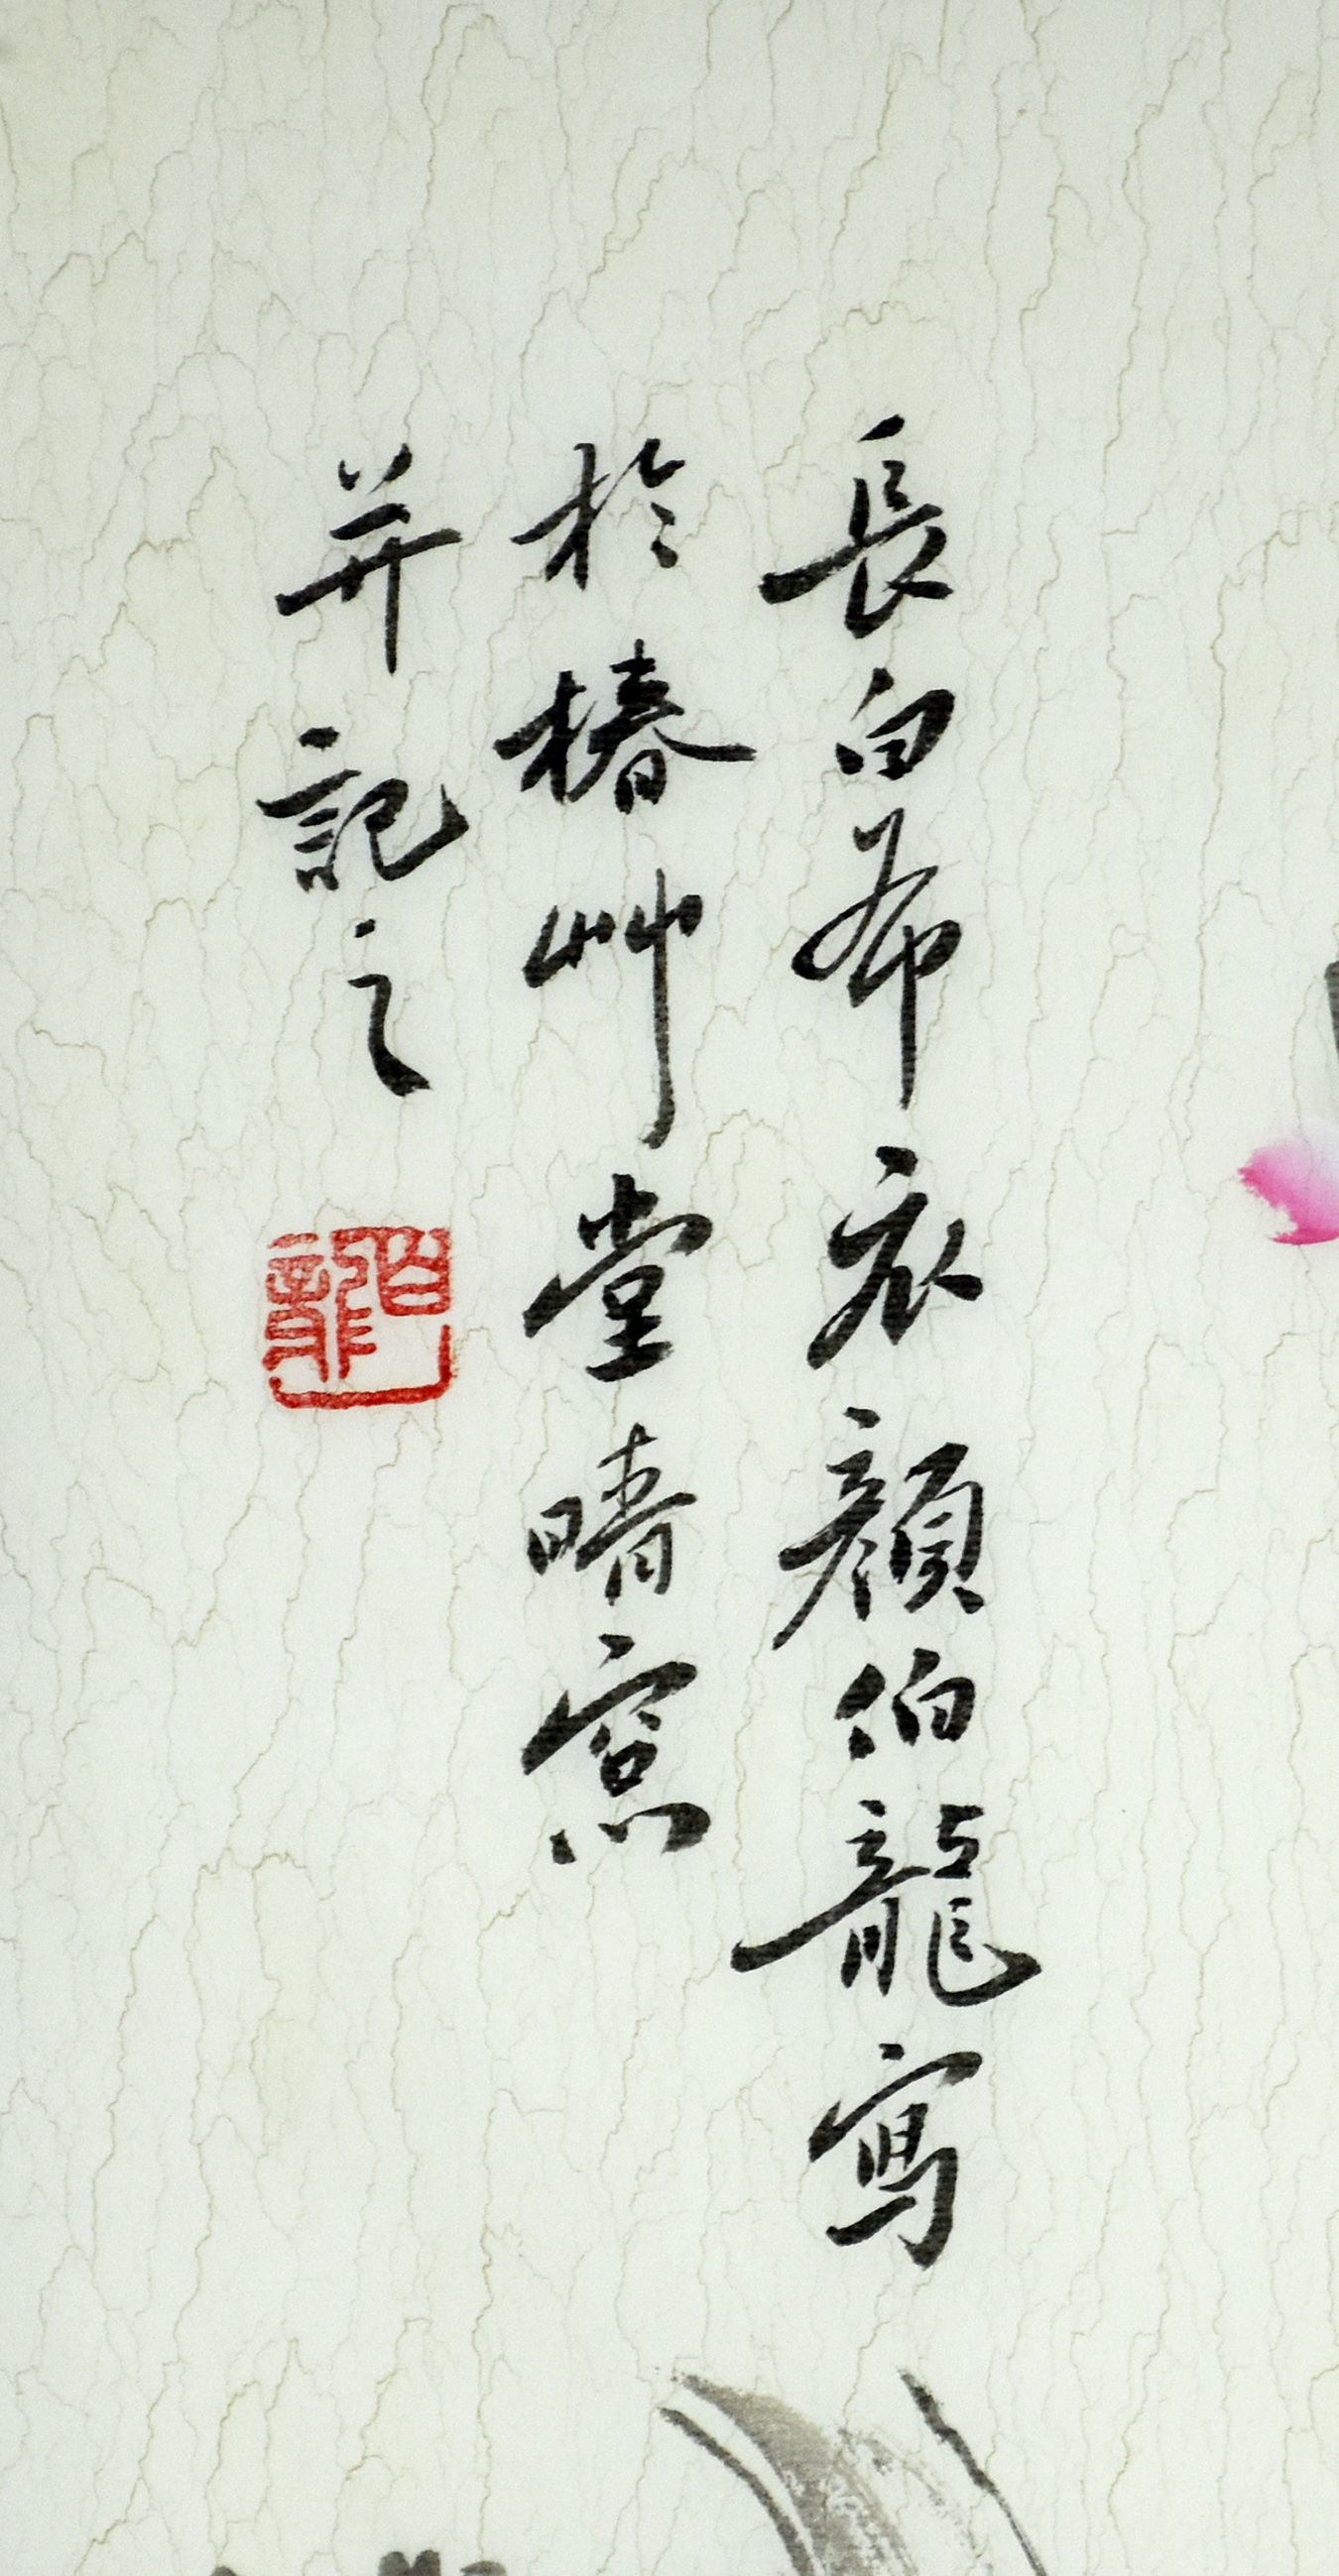 長白布衣顏伯龍寫
於椿艸堂晴窓
并記之
伯龍